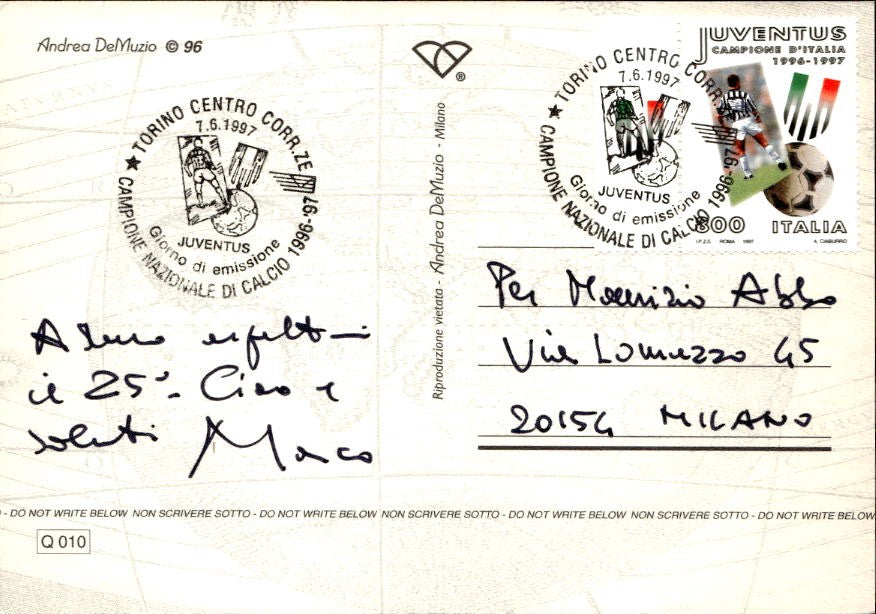 Andrea DeMuzio © 96
®
TORINO CENTRO CORR.ZE
7.6.1997
JUVENTUS
Giorno di emissione
CAMPIONE NAZIONALE DI CALCIO 1996-97
TORINO CENTRO CORR.ZE
7.6.1997
JUVENTUS
Giorno di emissione
CAMPIONE NAZIONALE DI CALCIO 1996-97
JUVENTUS
CAMPIONE D'ITALIA
1996-1997
800 ITALIA
I.P.Z.S. ROMA 1997 A. CIABURRO
Riproduzione vietata - Andrea DeMuzio - Milano
Per Maurizio Abbo
Via Lomazzo 45
20154 MILANO
il 25°. Ciao e
saluti Marco
- DO NOT WRITE BELOW NON SCRIVERE SOTTO - DO NOT WRITE BELOW NON SCRIVERE SOTTO - DO NOT WRITE BELOW NON SCRIVERE SOTTO - DO NOT WRITE BELOW
Q 010